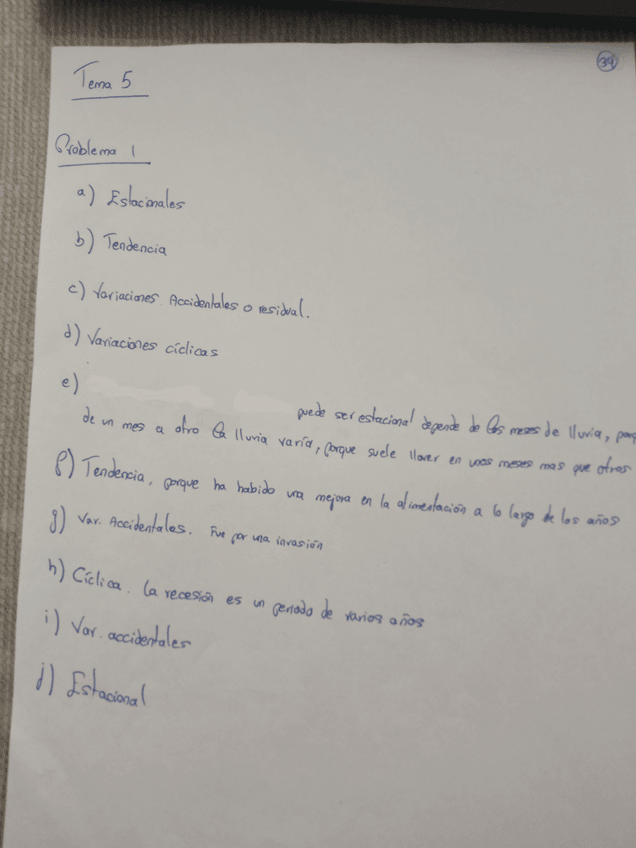 39
Tema 5
Problema 1
a) Estacionales
b) Tendencia
c) Variaciones Accidentales o residual.
d) Variaciones cíclicas
e)
puede ser estacional depende de los meses de lluvia, porq
de un mes a otro la lluvia varía, porque suele llover en unos meses mas que otros
f) Tendencia, porque ha habido una mejora en la alimentación a lo largo de los años
g) Var. Accidentales. Fue por una invasión
h) Cíclica. La recesión es un periodo de varios años
i) Var. accidentales
j) Estacional